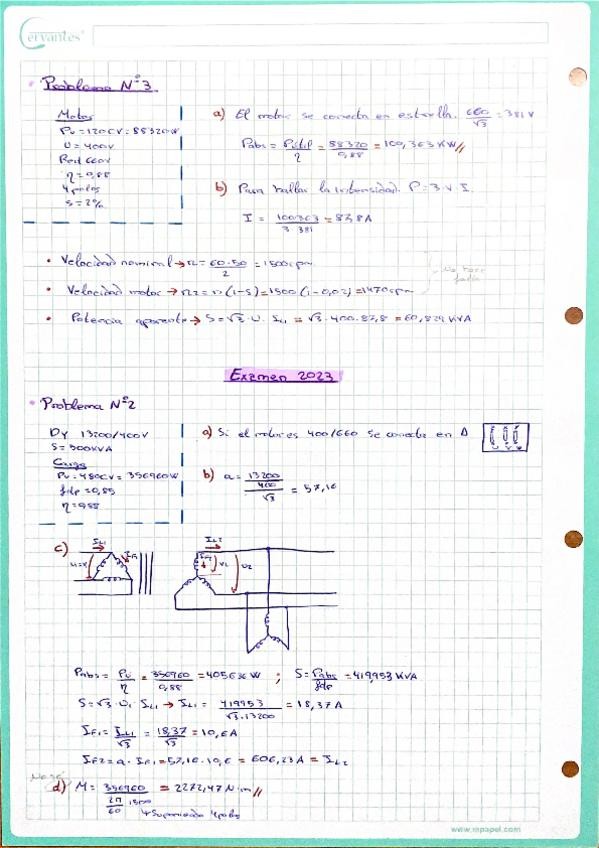 Cervantes
Problema Nº3
Motor
Pu = 120CV = 88320W
U = 400V
Red 660V
η = 0,88
4 polos
S = 2%
a) El motor se conecta en estrella. 660/√3 = 381V
Pabs = Pútil/η = 88320/0,88 = 100,363 KW//
b) Para hallar la intensidad. P = 3·V·I.
I = 100363/3·381 = 87,8A
• Velocidad nominal → n = 60·50/2 = 1500rpm
• Velocidad motor → n2 = n(1-S) = 1500(1-0,02) = 1470rpm
No hace falta
• Potencia aparente → S = √3·U·IL1 = √3·400·87,8 = 60,829 KVA
Examen 2023
• Problema Nº2
DY 13200/400V
S = 500KVA
Carga
Pu = 480CV = 356960W
η = 0,88
a) Si el motor es 400/660 se conecta en Δ
b) a = 13200/(400/√3) = 57,16
c)
IL1
IF1
IL2
IF2
V2
U2
Pabs = Pu/η = 356960/0,88 = 405636W ; S = Pabs/fdp = 419,953 KVA
S = √3·U1·IL1 → IL1 = 419953/√3·13200 = 18,37A
IF1 = IL1/√3 = 18,37/√3 = 10,6A
IF2 = a·IF1 = 57,16·10,6 = 606,23A = IL2
No sé
d) M = 356960/(2π/60 · 1500) = 2272,47 N·m//
↳ Suponiendo 4 polos
www.inpapel.com